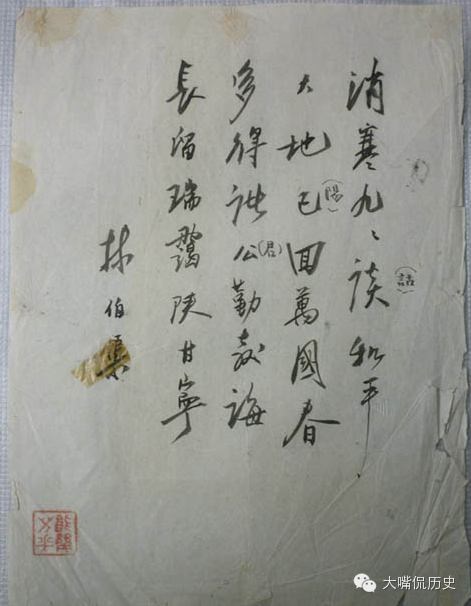 消寒九々談(話)和平
大地已(陽)回萬國春
多得諸公(君)勤教誨
長留瑞靄陝甘寧
林伯渠
大嘴侃历史